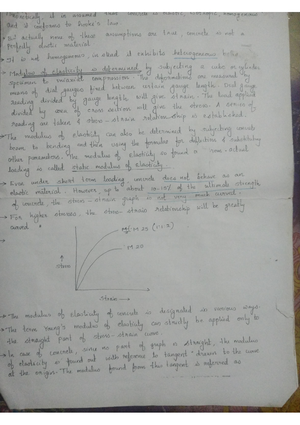 and is conforms to hooke's law.
It actually none of these assumptions are true, concrete is not a
perfectly elastic material
It is not homogeneous, in-deed it exhibits heterogeneous
Modulus of elasticity is determined by subjecting a cube or cylinder
specimen to uniaxial compression. The deformations are measured by
means of dial gauges fixed between certain gauge length. Dial gauge
reading divided by gauge length will give strain. The load applied
divided by area of cross section will give the stress. A series of
reading are taken & stress-strain relationship is established.
The modulus of elasticity can also be determined by subjecting concrete
beam to bending and then using the formulae for deflection & substituting
other parameters. The modulus of elasticity so found is from actual
loading is called static modulus of elasticity.
Even under short term loading concrete does not behave as an
elastic material. However, up to about 10-15% of the ultimate strength
of concrete, the stress-strain graph is not very much curved.
For higher stresses, the stress-strain relationship will be greatly
curved
stress
strain
The modulus of elasticity of concrete is designated in various ways
The term Young's modulus of elasticity can strictly be applied only to
the straight part of stress-strain curve
In case of concrete, since no part of graph is straight, the modulus
of elasticity is found out with reference to tangent drawn to the curve
at the origin. The modulus found from this tangent is referred as